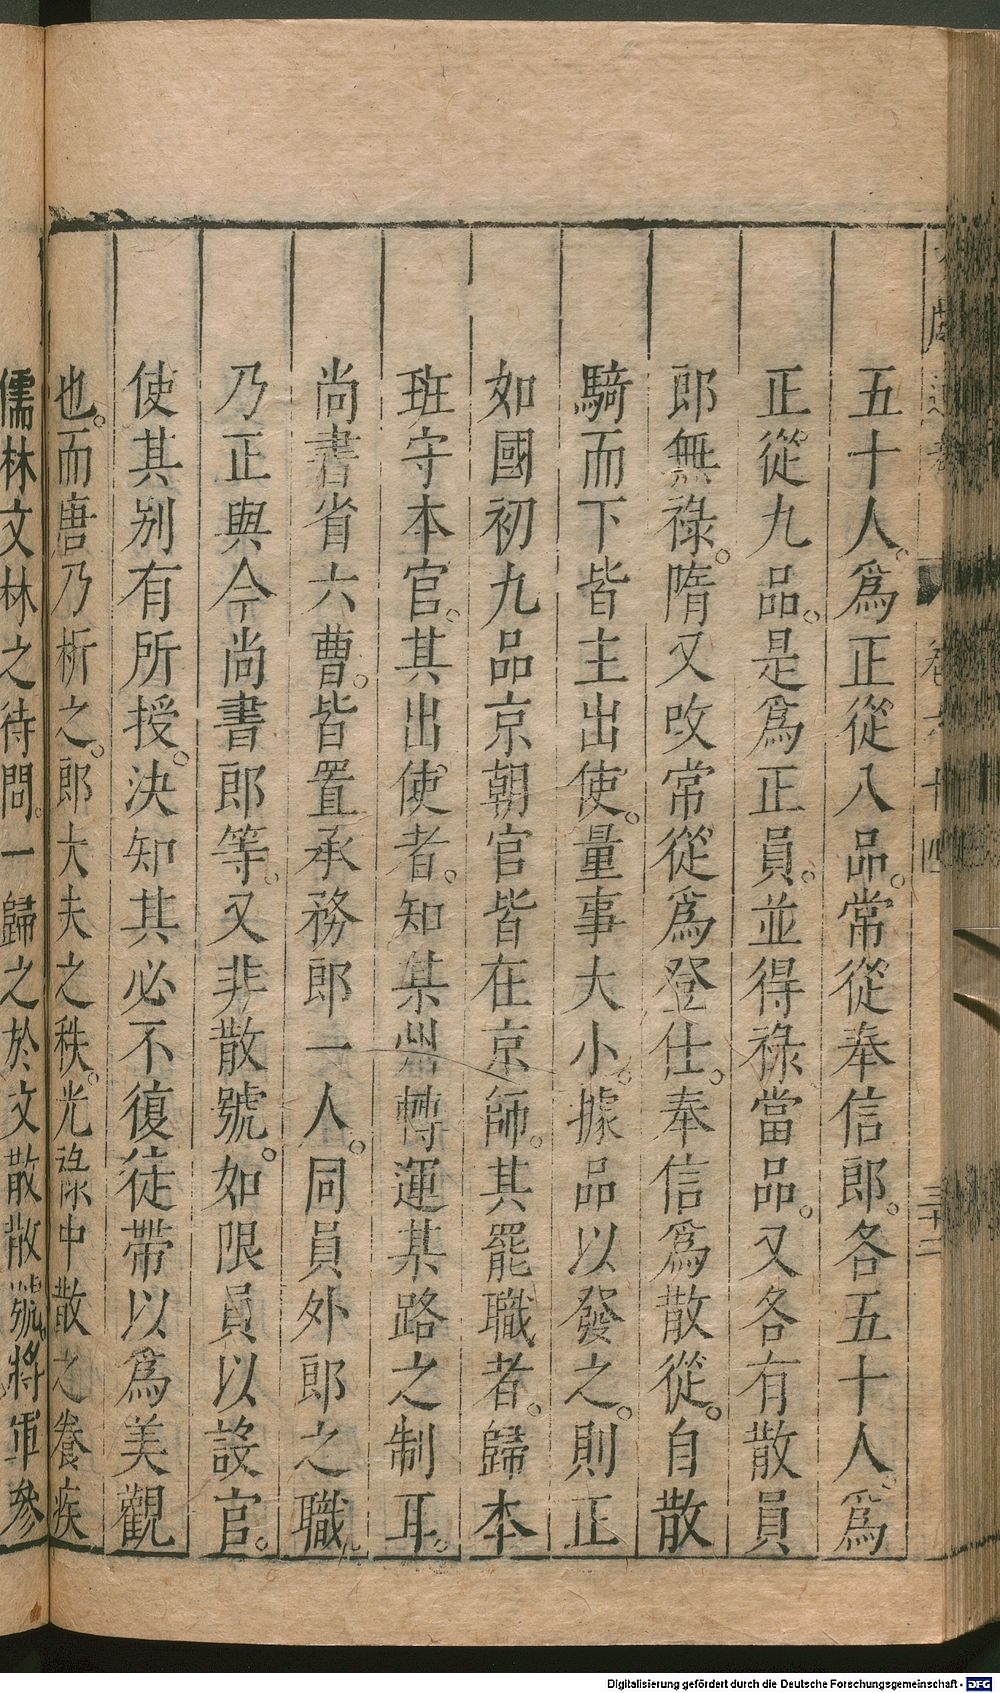 五十人。爲正從八品。常從奉信郎。各五十人。爲
正從九品。是爲正員。並得祿當品。又各有散員
郎無祿。隋又改常從爲登仕。奉信爲散從。自散
騎而下皆主出使。量事大小。據品以發之。則正
如國初九品京朝官皆在京師。其罷職者。歸本
班守本官。其出使者。知某州轉運某路之制耳。
尚書省六曹。皆置承務郎一人。同員外郎之職。
乃正與今尚書郎等。又非散號。如限員以設官。
使其别有所授。決知其必不復徒帶以爲美觀
也。而唐乃析之。郎大夫之秩。光祿中散之養疾
儒林文林之待問。一歸之於文散散號。將軍參
卷六十四
三十二
Digitalisierung gefördert durch die Deutsche Forschungsgemeinschaft - DFG